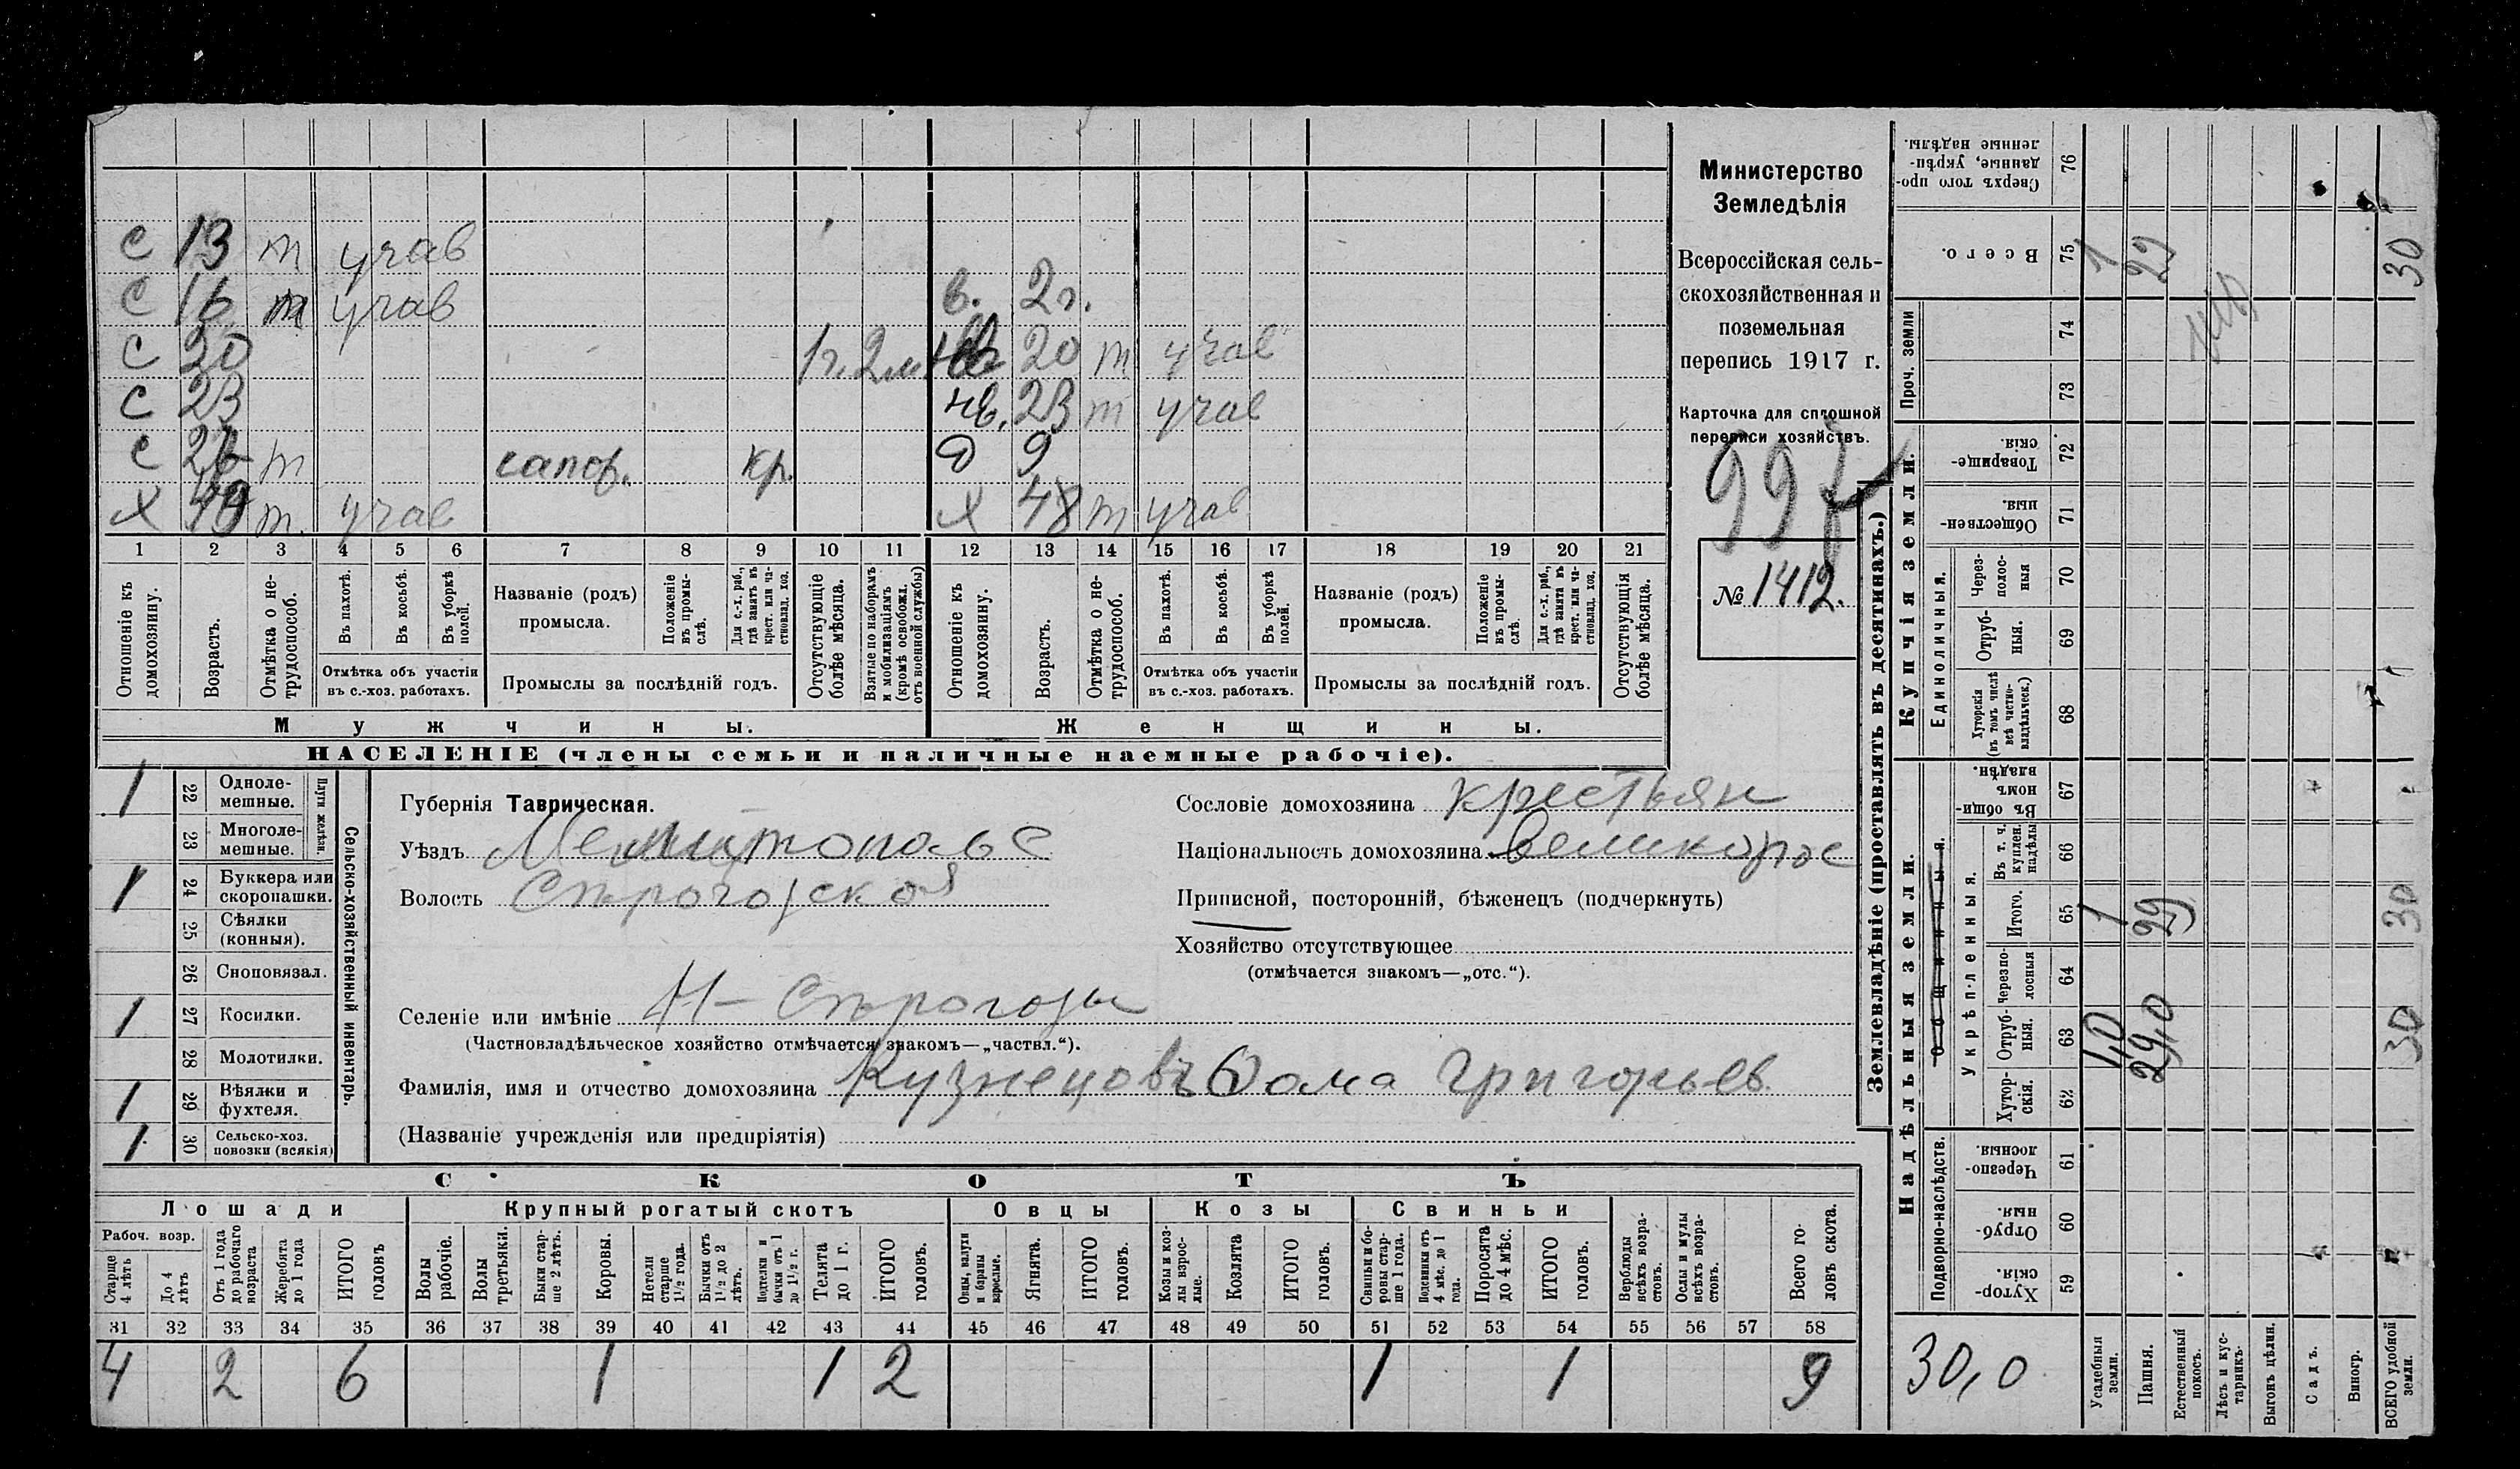 с 13 т учав
с 16 т учав в. 2 г.
с 20 1 г. 2 м. нв 20 т учав
с 23 нв. 23 т учав
с 26 т сапож. кр. д 9
х 49 т. учав х 48 т учав
1 2 3 4 5 6 7 8 9 10 11 12 13 14 15 16 17 18 19 20 21
Отношеніе къ домохозяину.
Возрастъ.
Отмѣтка о не-трудоспособ.
Въ пахотѣ.
Въ косьбѣ.
Въ уборкѣ полей.
Отмѣтка объ участіи
въ с.-хоз. работахъ.
Названіе (родъ)
промысла.
Положеніе въ промы-слѣ.
Для с.-х. раб., гдѣ занятъ въ крест. или ча-стновлад. хоз.
Промыслы за послѣдній годъ.
Отсутствующіе болѣе мѣсяца.
Взятые по наборамъ и мобилизаціямъ (кромѣ освобожд. отъ военной службы)
Отношеніе къ домохозяину.
Возрастъ.
Отмѣтка о не-трудоспособ.
Въ пахотѣ.
Въ косьбѣ.
Въ уборкѣ полей.
Отмѣтка объ участіи
въ с.-хоз. работахъ.
Названіе (родъ)
промысла.
Положеніе въ промы-слѣ.
Для с.-х. раб., гдѣ занята въ крест. или ча-стновлад. хоз.
Промыслы за послѣдній годъ.
Отсутствующія болѣе мѣсяца.
Мужчины. Женщины.
НАСЕЛЕНІЕ (члены семьи и наличные наемные рабочіе).
Министерство
Земледѣлія
Всероссійская сель-
скохозяйственная и
поземельная
перепись 1917 г.
Карточка для сплошной
переписи хозяйствъ.
997
№ 1412.
1 22 Одноле-мешные.
23 Многоле-мешные.
Плуги желѣзн.
1 24 Буккера или скоропашки.
25 Сѣялки (конныя).
26 Сноповязал.
1 27 Косилки.
28 Молотилки.
1 29 Вѣялки и фухтеля.
1 30 Сельско-хоз. повозки (всякія)
Сельско-хозяйственный инвентарь.
Губернія Таврическая.
Уѣздъ Мелитопольс
Волость Строгозской
Селеніе или имѣніе Н- Строгозы
(Частновладѣльческое хозяйство отмѣчается знакомъ—„частвл.“).
Фамилія, имя и отчество домохозяина Кузнецовъ Ѳома Григорьев.
(Названіе учрежденія или предпріятія)
Сословіе домохозяина крестьян
Національность домохозяина великорос
Приписной, посторонній, бѣженецъ (подчеркнуть)
Хозяйство отсутствующее
(отмѣчается знакомъ—„отс.“).
СКОТЪ
Лошади Крупный рогатый скотъ Овцы Козы Свиньи
Рабоч. возр.
Старше 4 лѣтъ
До 4 лѣтъ
Отъ 1 года до рабочаго возраста
Жеребята до 1 года
ИТОГО головъ
Волы рабочіе.
Волы третьяки.
Быки стар-ше 2 лѣтъ.
Коровы.
Нетели старше 1½ года.
Бычки отъ 1½ до 2 лѣтъ.
Подтелки и бычки отъ 1 до 1½ г.
Телята до 1 г.
ИТОГО головъ.
Овцы, валухи и бараны взрослые.
Ягнята.
ИТОГО головъ.
Козы и коз-лы взрос-лые.
Козлята
ИТОГО головъ.
Свиньи и бо-ровы стар-ше 1 года.
Подсвинки отъ 4 мѣс. до 1 года.
Поросята до 4 мѣс.
ИТОГО головъ.
Верблюды всѣхъ возра-стовъ.
Ослы и мулы всѣхъ возра-стовъ.
Всего го-ловъ скота.
31 32 33 34 35 36 37 38 39 40 41 42 43 44 45 46 47 48 49 50 51 52 53 54 55 56 57 58
4 2 6 1 1 2 1 1 9
Землевладѣніе (проставлять въ десятинахъ.)
Сверхъ того про-данные, укрѣп-ленные надѣлы. 76
Всего. 75 1 29 30
Проч. земли 74 73
Купчія земли.
Товарище-скія. 72
Обществен-ныя. 71
Единоличныя.
Через-полос-ныя 70
Отруб-ныя. 69
Хуторскія (въ томъ числѣ всѣ частно-владѣльческ.) 68
Надѣльныя земли.
Общинныя.
Въ общин-номъ владѣн. 67
Укрѣпленныя.
Въ т. ч. куплен. надѣлы 66
Итого. 65 1 29 30
Черезпо-лосныя 64
Отруб-ныя. 63 1,0 29,0 30
Хутор-скія. 62
Подворно-наслѣдств.
Черезпо-лосныя. 61
Отруб-ныя. 60
Хутор-скія. 59
30,0
Усадебныя земли.
Пашня.
Естественный покосъ.
Лѣсъ и кус-тарникъ.
Выгонъ цѣлин.
Садъ.
Виногр.
ВСЕГО удобной земли.